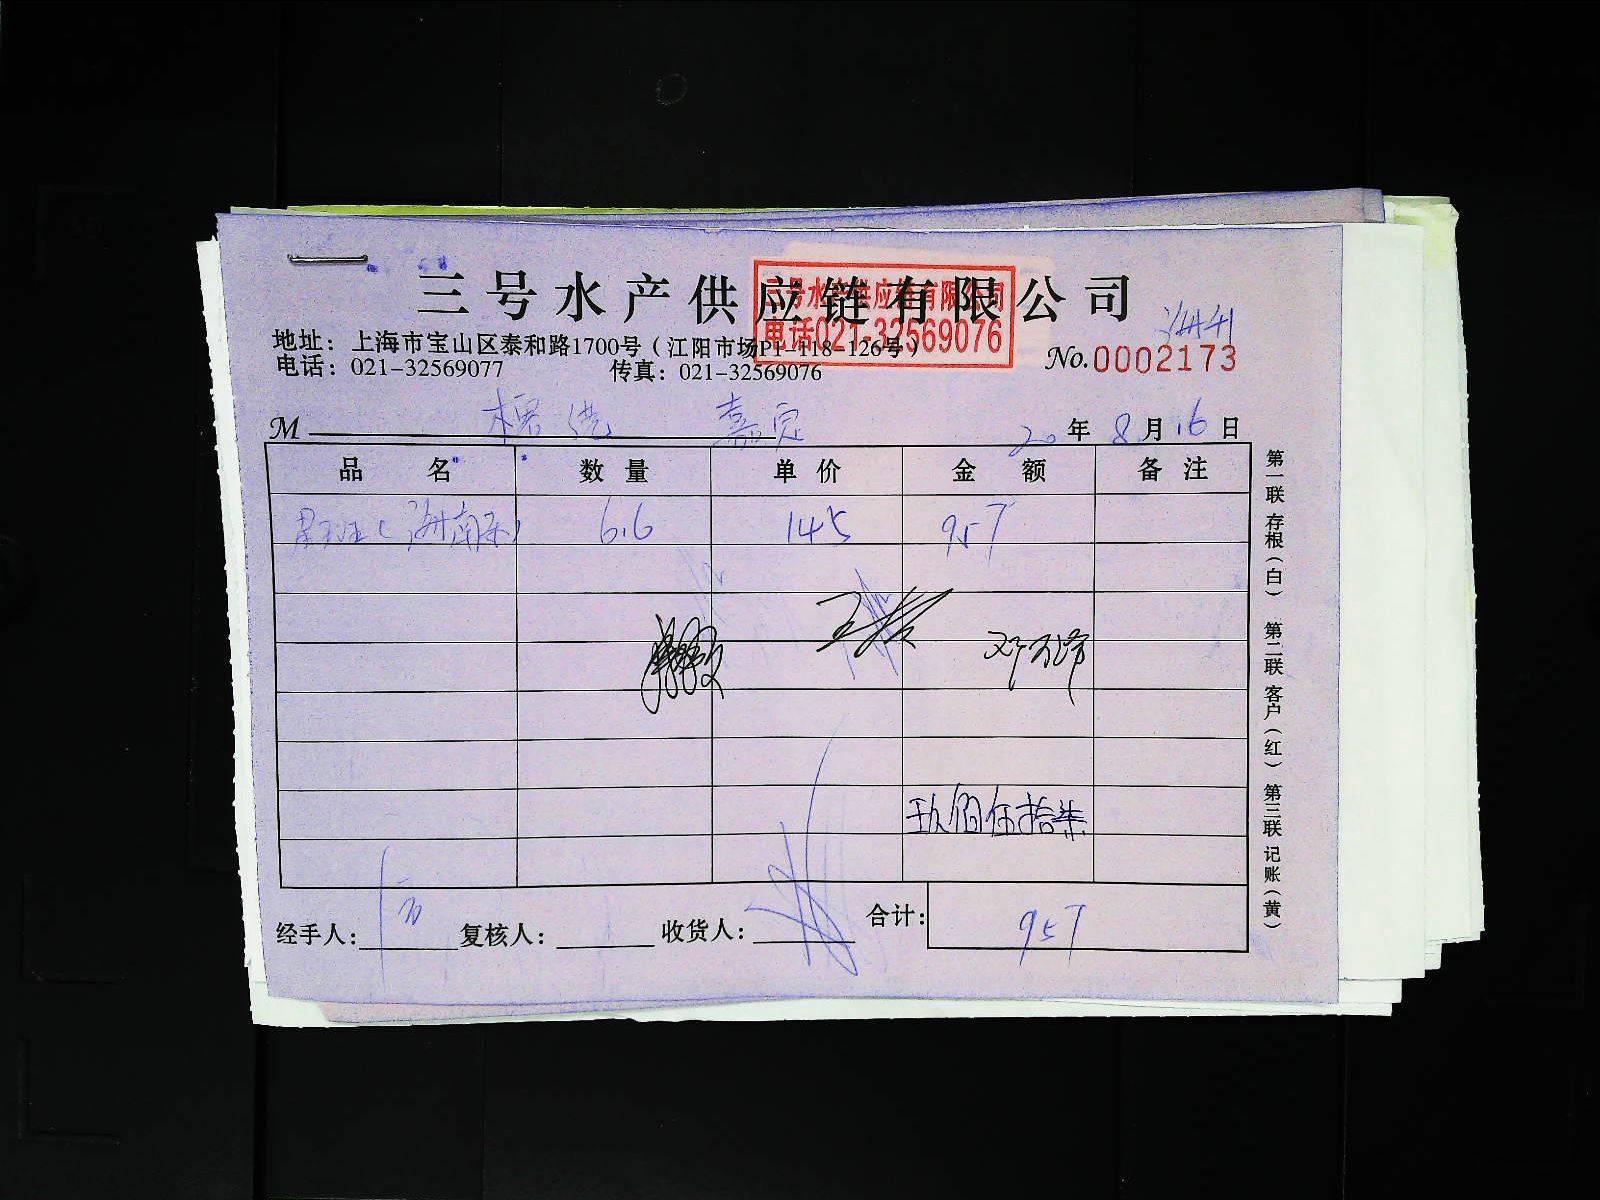 三号水产供应链有限公司
三号水产供应链有限公司
电话021-32569076
地址：上海市宝山区泰和路1700号（江阳市场P1-118-126号）
电话：021-32569077 传真：021-32569076
No.0002173
M 嘉定 20年8月16日
品名 数量 单价 金额 备注
6.6 145 957
玖佰伍拾柒
经手人： 复核人： 收货人： 合计：957
第一联 存根（白） 第二联 客户（红） 第三联 记账（黄）